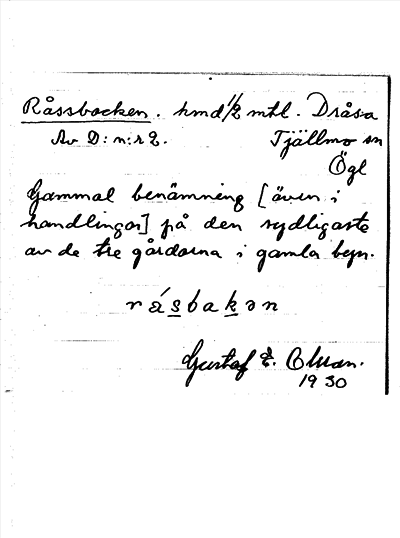 Råssbocken. hmd 1/2 mtl. Dråsa
Av D:n:r 2. Tjällmo sn
Ögl
Gammal benämning [även i
handlingar] på den sydligaste
av de tre gårdarna i gamla byn.
råsbakən
Gustaf E.
1930